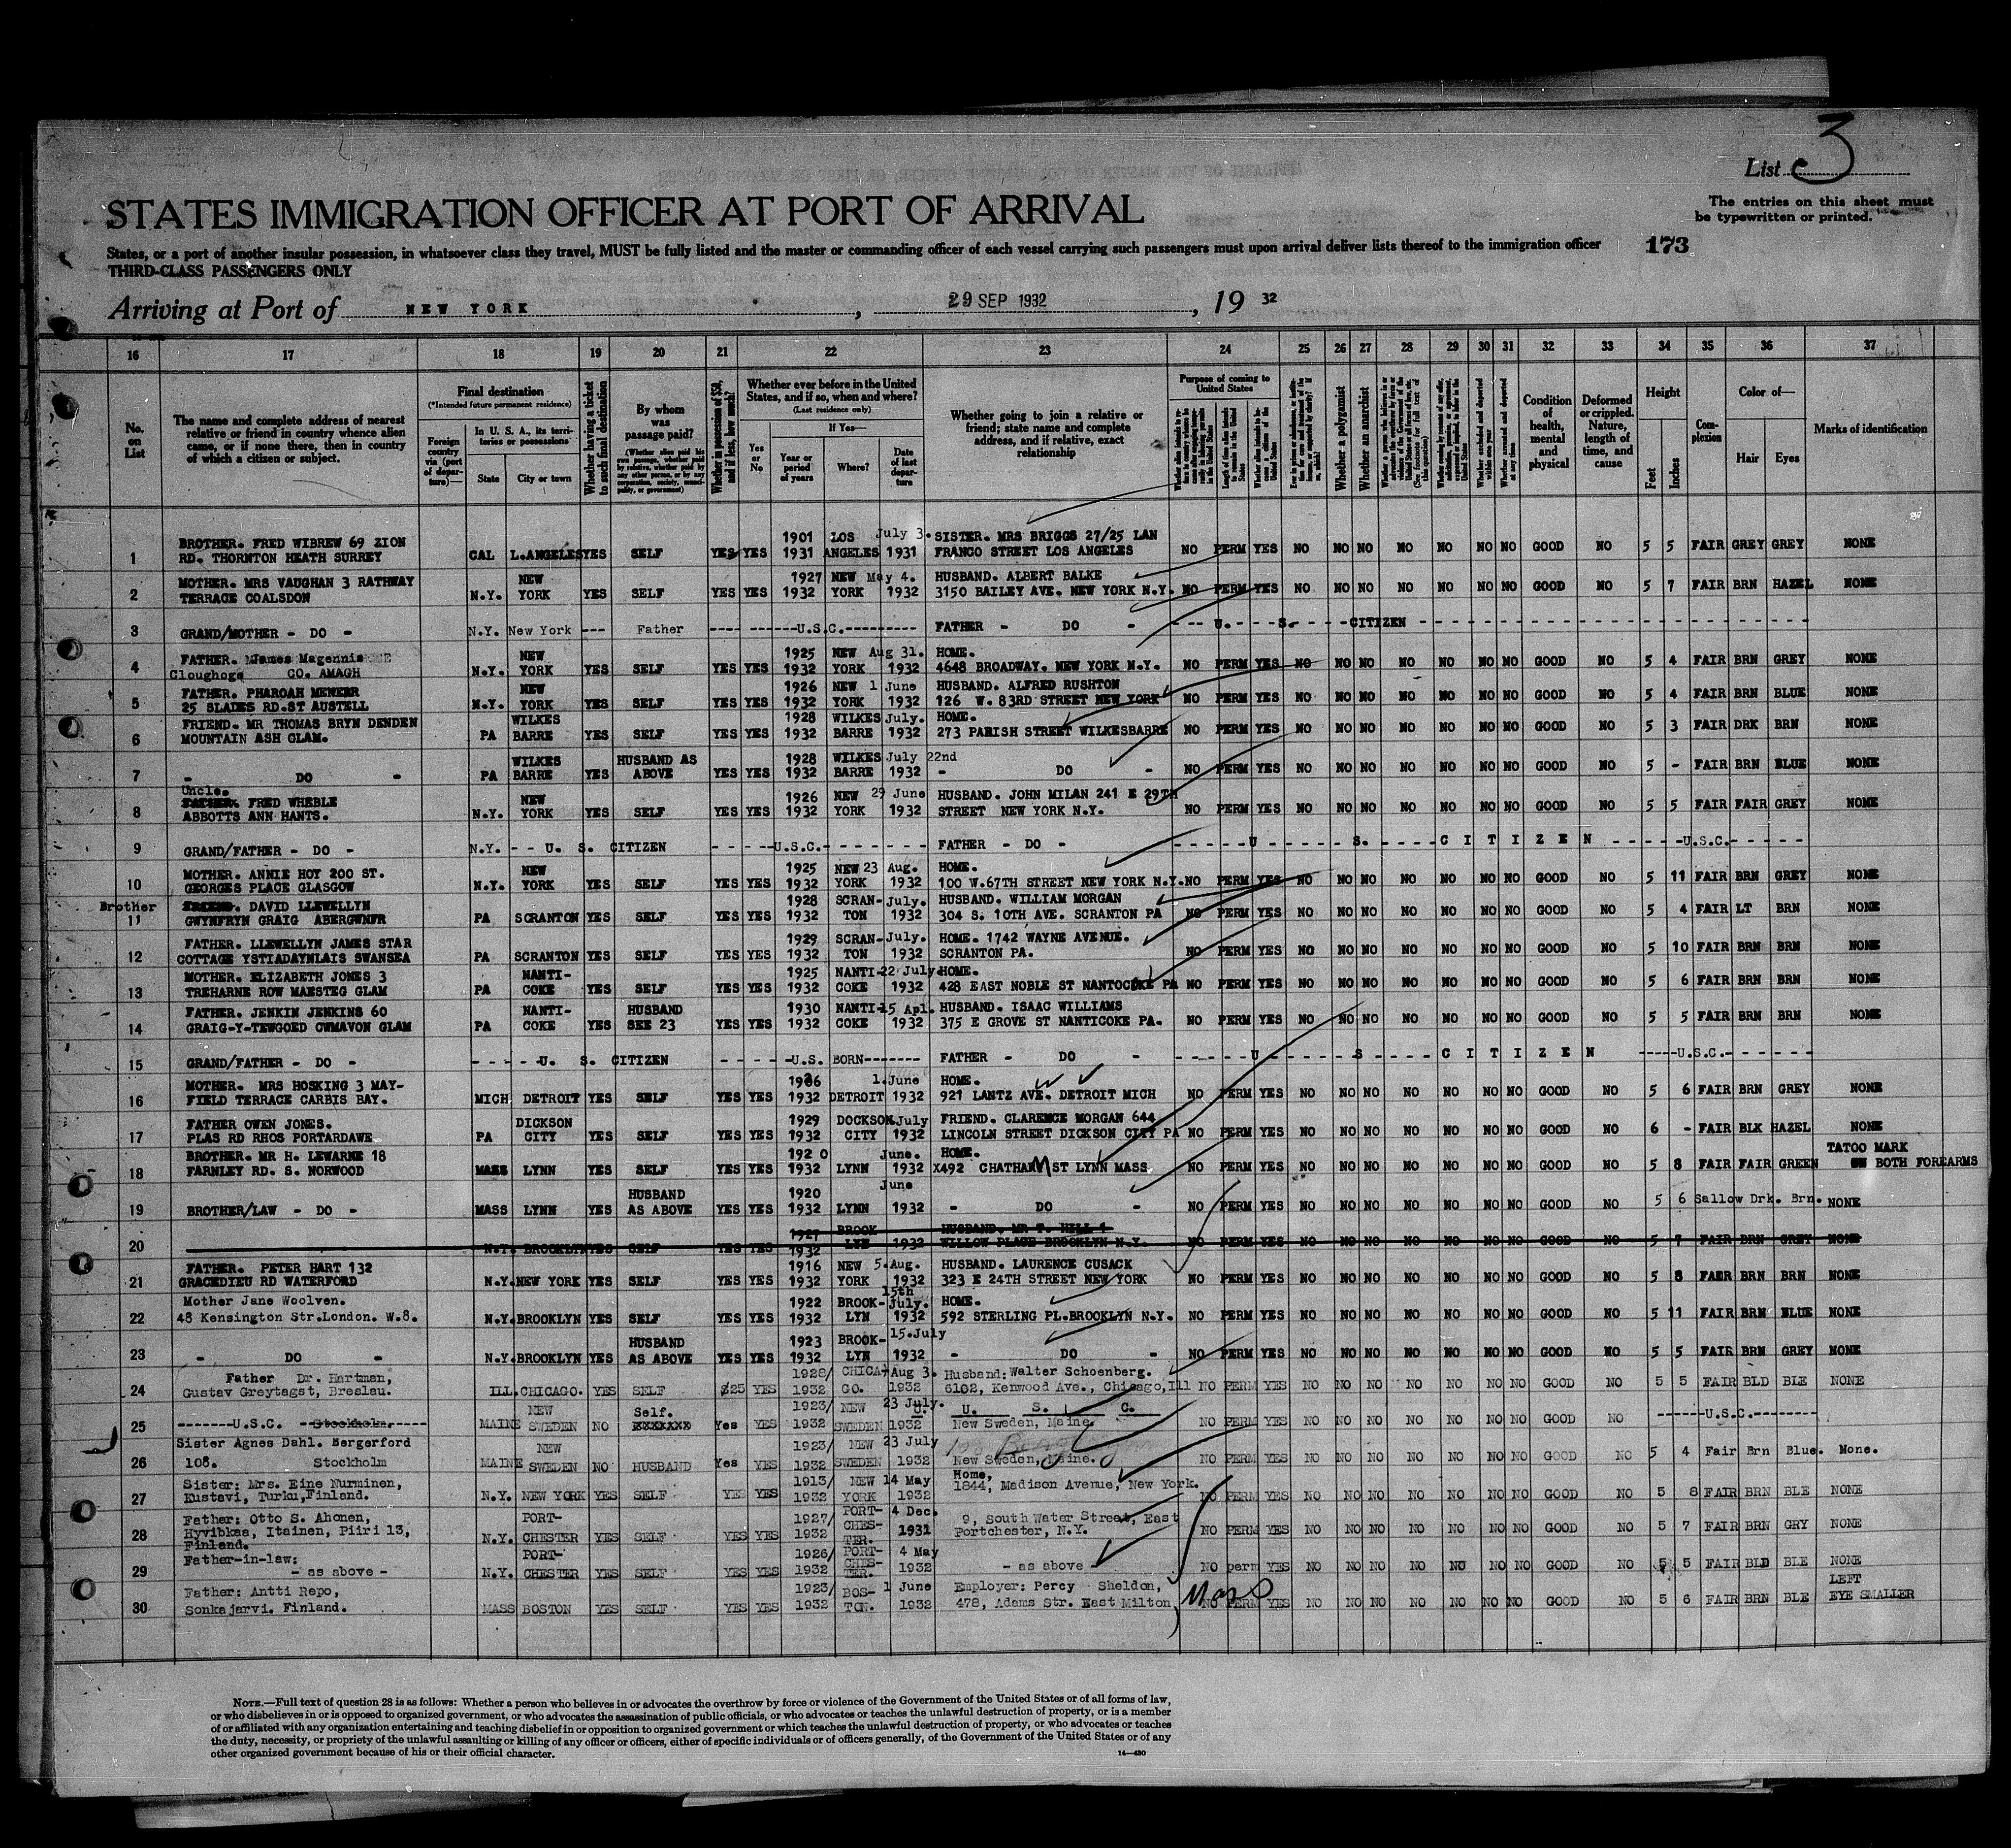 List 3
STATES IMMIGRATION OFFICER AT PORT OF ARRIVAL
The entries on this sheet must
be typewritten or printed.
States, or a port of another insular possession, in whatsoever class they travel, MUST be fully listed and the master or commanding officer of each vessel carrying such passengers must upon arrival deliver lists thereof to the immigration officer
173
THIRD-CLASS PASSENGERS ONLY
Arriving at Port of NEW YORK, 29 SEP 1932, 19 32
16 17 18 19 20 21 22 23 24 25 26 27 28 29 30 31 32 33 34 35 36 37
No. on List
The name and complete address of nearest relative or friend in country whence alien came, or if none there, then in country of which a citizen or subject.
Final destination
(*Intended future permanent residence)
Foreign country via (port of departure)—
In U. S. A., its territories or possessions
State
City or town
Whether having a ticket to such final destination
By whom was passage paid?
(Whether alien paid his own passage, whether paid by relative, whether paid by any other person, or by any corporation, society, municipality, or government)
Whether in possession of $50, and if less, how much?
Whether ever before in the United States, and if so, when and where?
(Last residence only)
Yes or No
If Yes—
Year or period of years
Where?
Date of last departure
Whether going to join a relative or friend; state name and complete address, and if relative, exact relationship
Purpose of coming to United States
Length of time alien intends to remain in the United States
Whether alien intends to become a citizen of the United States
Whether a polygamist
Whether an anarchist
Whether excluded and deported within one year
Whether arrested and deported at any time
Condition of health, mental and physical
Deformed or crippled. Nature, length of time, and cause
Height
Feet
Inches
Complexion
Color of—
Hair
Eyes
Marks of identification
1 BROTHER. FRED WIBREW 69 ZION RD. THORNTON HEATH SURREY CAL L.ANGELES YES SELF YES YES 1901 1931 LOS ANGELES July 3. 1931 SISTER. MRS BRIGGS 27/25 LAN FRANCO STREET LOS ANGELES NO PERM YES NO NO NO NO NO NO NO GOOD NO 5 5 FAIR GREY GREY NONE
2 MOTHER. MRS VAUGHAN 3 RATHWAY TERRACE COALSDON N.Y. NEW YORK YES SELF YES YES 1927 1932 NEW YORK May 4. 1932 HUSBAND. ALBERT BALKE 3150 BAILEY AVE. NEW YORK N.Y. NO PERM YES NO NO NO NO NO NO NO GOOD NO 5 7 FAIR BRN HAZEL NONE
3 GRAND/MOTHER - DO - N.Y. New York --- Father ---- ------U.S.C.---------- FATHER - DO - --- U. ---- S. -----CITIZEN - - - - - -
4 FATHER. James Magennis Cloughoge CO. AMAGH N.Y. NEW YORK YES SELF YES YES 1925 1932 NEW YORK Aug 31. 1932 HOME. 4648 BROADWAY. NEW YORK N.Y. NO PERM YES NO NO NO NO NO NO NO GOOD NO 5 4 FAIR BRN GREY NONE
5 FATHER. PHAROAH MENEAR 25 SLADES RD.ST AUSTELL N.Y. NEW YORK YES SELF YES YES 1926 1932 NEW YORK 1 June 1932 HUSBAND. ALFRED RUSHTON 126 W. 83RD STREET NEW YORK NO PERM YES NO NO NO NO NO NO NO GOOD NO 5 4 FAIR BRN BLUE NONE
6 FRIEND. MR THOMAS BRYN DENDEN MOUNTAIN ASH GLAM. PA WILKES BARRE YES SELF YES YES 1928 1932 WILKES BARRE July. 1932 HOME. 273 PARISH STREET WILKESBARRE NO PERM YES NO NO NO NO NO NO NO GOOD NO 5 3 FAIR DRK BRN NONE
7 - DO - PA WILKES BARRE YES HUSBAND AS ABOVE YES YES 1928 1932 WILKES BARRE July 22nd 1932 - DO - NO PERM YES NO NO NO NO NO NO NO GOOD NO 5 - FAIR BRN BLUE NONE
8 Uncle. FATHER. FRED WHEBLE ABBOTTS ANN HANTS. N.Y. NEW YORK YES SELF YES YES 1926 1932 NEW YORK 29 June 1932 HUSBAND. JOHN MILAN 241 E 29TH STREET NEW YORK N.Y. NO PERM YES NO NO NO NO NO NO NO GOOD NO 5 5 FAIR FAIR GREY NONE
9 GRAND/FATHER - DO - N.Y. - - U. S. CITIZEN - - - - -U.S.C.- - - - - - - FATHER - DO - - - - - - U - - - - - S. - - - - C I T I Z E N - - - - -U.S.C.- - - - -
10 MOTHER. ANNIE HOY 200 ST. GEORGES PLACE GLASGOW N.Y. NEW YORK YES SELF YES YES 1925 1932 NEW YORK 23 Aug. 1932 HOME. 100 W.67TH STREET NEW YORK N.Y. NO PERM YES NO NO NO NO NO NO NO GOOD NO 5 11 FAIR BRN GREY NONE
11 Brother FRIEND. DAVID LLEWELLYN GWYNFRYN GRAIG ABERGWNFR PA SCRANTON YES SELF YES YES 1928 1932 SCRANTON July. 1932 HUSBAND. WILLIAM MORGAN 304 S. 10TH AVE. SCRANTON PA NO PERM YES NO NO NO NO NO NO NO GOOD NO 5 4 FAIR LT BRN NONE
12 FATHER. LLEWELLYN JAMES STAR COTTAGE YSTIADAYNLAIS SWANSEA PA SCRANTON YES SELF YES YES 1929 1932 SCRANTON July. 1932 HOME. 1742 WAYNE AVENUE. SCRANTON PA. NO PERM YES NO NO NO NO NO NO NO GOOD NO 5 10 FAIR BRN BRN NONE
13 MOTHER. ELIZABETH JONES 3 TREHARNE ROW MAESTEG GLAM PA NANTICOKE YES SELF YES YES 1925 1932 NANTICOKE 22 July. 1932 HOME. 428 EAST NOBLE ST NANTOCOKE PA NO PERM YES NO NO NO NO NO NO NO GOOD NO 5 6 FAIR BRN BRN NONE
14 FATHER. JENKIN JENKINS 60 GRAIG-Y-TEWGOED CWMAVON GLAM PA NANTICOKE YES HUSBAND SEE 23 YES YES 1930 1932 NANTICOKE 15 Apl. 1932 HUSBAND. ISAAC WILLIAMS 375 E GROVE ST NANTICOKE PA. NO PERM YES NO NO NO NO NO NO NO GOOD NO 5 5 FAIR BRN BRN NONE
15 GRAND/FATHER - DO - - - - - U. S. CITIZEN - - - - -U.S. BORN------- FATHER - DO - - - - - - U - - - - - S - - - - C I T I Z E N -----U.S.C.- - - - - -
16 MOTHER. MRS HOSKING 3 MAYFIELD TERRACE CARBIS BAY. MICH DETROIT YES SELF YES YES 1932 DETROIT 1. June 1932 HOME. 921 LANTZ AVE. DETROIT MICH NO PERM YES NO NO NO NO NO NO NO GOOD NO 5 6 FAIR BRN GREY NONE
17 FATHER OWEN JONES. PLAS RD RHOS PORTARDAWE PA DICKSON CITY YES SELF YES YES 1929 1932 DOCKSON CITY July 1932 FRIEND. CLARENCE MORGAN 644 LINCOLN STREET DICKSON CITY PA NO PERM YES NO NO NO NO NO NO NO GOOD NO 6 - FAIR BLK HAZEL NONE
18 BROTHER. MR H. LEWARNE 18 FARNLEY RD. S. NORWOOD MASS LYNN YES SELF YES YES 1920 1932 LYNN June. 1932 HOME. X492 CHATHAM ST LYNN MASS NO PERM YES NO NO NO NO NO NO NO GOOD NO 5 8 FAIR FAIR GREEN TATOO MARK ON BOTH FOREARMS
19 BROTHER/LAW - DO - MASS LYNN YES HUSBAND AS ABOVE YES YES 1920 1932 LYNN June 1932 - DO - NO PERM YES NO NO NO NO NO NO NO GOOD NO 5 6 Sallow Drk. Brn. NONE
20 N.Y. BROOKLYN YES SELF YES YES 1927 1932 BROOKLYN 1932 HUSBAND. MR T. HILL 4 WILLOW PLACE BROOKLYN N.Y. NO PERM YES NO NO NO NO NO NO NO GOOD NO 5 7 FAIR BRN GREY NONE
21 FATHER. PETER HART 132 GRACEDIEU RD WATERFORD N.Y. NEW YORK YES SELF YES YES 1916 1932 NEW YORK 5. Aug. 1932 HUSBAND. LAURENCE CUSACK 323 E 24TH STREET NEW YORK NO PERM YES NO NO NO NO NO NO NO GOOD NO 5 8 FAIR BRN BRN NONE
22 Mother Jane Woolven. 48 Kensington Str.London. W.8. N.Y. BROOKLYN YES SELF YES YES 1922 1932 BROOKLYN 15th July. 1932 HOME. 592 STERLING PL.BROOKLYN N.Y. NO PERM YES NO NO NO NO NO NO NO GOOD NO 5 11 FAIR BRN BLUE NONE
23 - DO - N.Y. BROOKLYN YES HUSBAND AS ABOVE YES YES 1923 1932 BROOKLYN 15.July 1932 - DO - NO PERM YES NO NO NO NO NO NO NO GOOD NO 5 5 FAIR BRN GREY NONE
24 Father Dr. Hartman, Gustav Greytagst, Breslau. ILL. CHICAGO. YES SELF $25 YES 1928/ 1932 CHICAGO. Aug 3. 1932 Husband: Walter Schoenberg. 6102, Kenwood Ave., Chicago,Ill NO PERM YES NO NO NO NO NO NO NO GOOD NO 5 5 FAIR BLD BLE NONE
25 -------U.S.C. --Stockholm.----- MAINE NEW SWEDEN NO Self. XXXXXXX Yes YES 1923/ 1932 NEW SWEDEN 23 July. 1932 U. U. S. C. New Sweden, Maine. NO PERM YES NO NO NO NO NO NO NO GOOD NO ------U.S.C.--------
26 Sister Agnes Dahl. Bergerford 108. Stockholm MAINE NEW SWEDEN NO HUSBAND Yes YES 1923/ 1932 NEW SWEDEN 23 July 1932 New Sweden, Maine. NO PERM YES NO NO NO NO NO NO NO GOOD NO 5 4 Fair Brn Blue. None.
27 Sister: Mrs. Eine Nurminen, Kustavi, Turku,Finland. N.Y. NEW YORK YES SELF YES YES 1913/ 1932 NEW YORK 14 May 1932 Home, 1844, Madison Avenue, New York. NO PERM YES NO NO NO NO NO NO NO GOOD NO 5 8 FAIR BRN BLE NONE
28 Father: Otto S. Ahonen, Hyvibkaa, Itainen, Piiri 13, Finland. N.Y. PORT-CHESTER YES SELF YES YES 1927/ 1932 PORT-CHES-TER. 4 Dec. 1931 9, South Water Street, East Portchester, N.Y. NO PERM YES NO NO NO NO NO NO NO GOOD NO 5 7 FAIR BRN GRY NONE
29 Father-in-law: - as above - N.Y. PORT-CHESTER YES SELF YES YES 1926/ 1932 PORT-CHES-TER. 4 May 1932 - as above - NO perm YES NO NO NO NO NO NO NO GOOD NO 5 5 FAIR BLD BLE NONE
30 Father: Antti Repo, Sonkajarvi. Finland. MASS BOSTON YES SELF YES YES 1923/ 1932 BOS-TON. 1 June 1932 Employer: Percy Sheldon, 478, Adams Str. East Milton, NO PERM YES NO NO NO NO NO NO NO GOOD NO 5 6 FAIR BRN BLE LEFT EYE SMALLER
NOTE.—Full text of question 28 is as follows: Whether a person who believes in or advocates the overthrow by force or violence of the Government of the United States or of all forms of law,
or who disbelieves in or is opposed to organized government, or who advocates the assassination of public officials, or who advocates or teaches the unlawful destruction of property, or is a member
of or affiliated with any organization entertaining and teaching disbelief in or opposition to organized government or which teaches the unlawful destruction of property, or who advocates or teaches
the duty, necessity, or propriety of the unlawful assaulting or killing of any officer or officers, either of specific individuals or of officers generally, of the Government of the United States or of any
other organized government because of his or their official character.
14—430